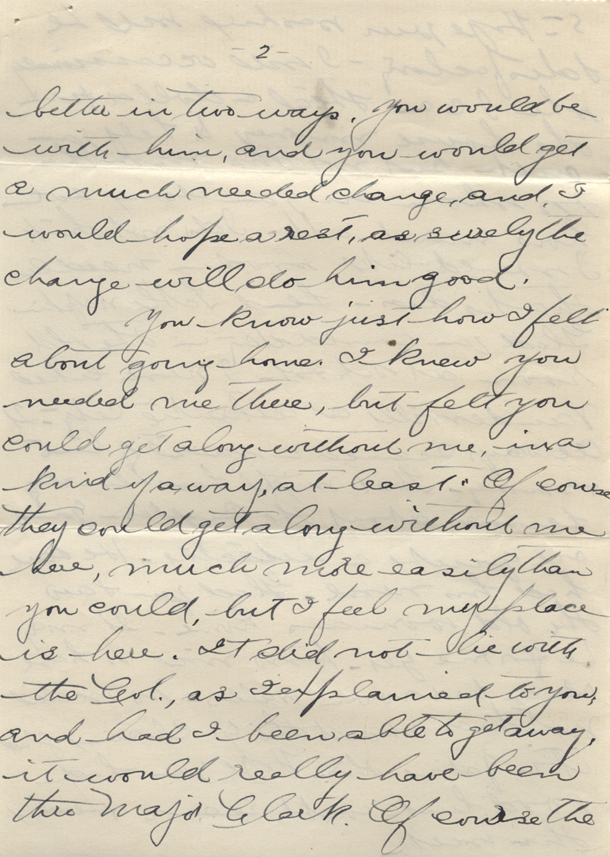 2-
better in two ways. You would be
with him, and you would get
a much needed change, and, I
would hope a rest, as surely the
change will do him good.
You know just how I felt
about going home. I knew you
needed me there, but felt you
could get along without me, in a
kind of a way, at least. Of course
they could get along without me
here, much more easily than
you could, but I feel my place
is here. It did not lie with
the Col., as I explained to you,
and had I been able to get away,
it would really have been
thro Major Clark. Of course the